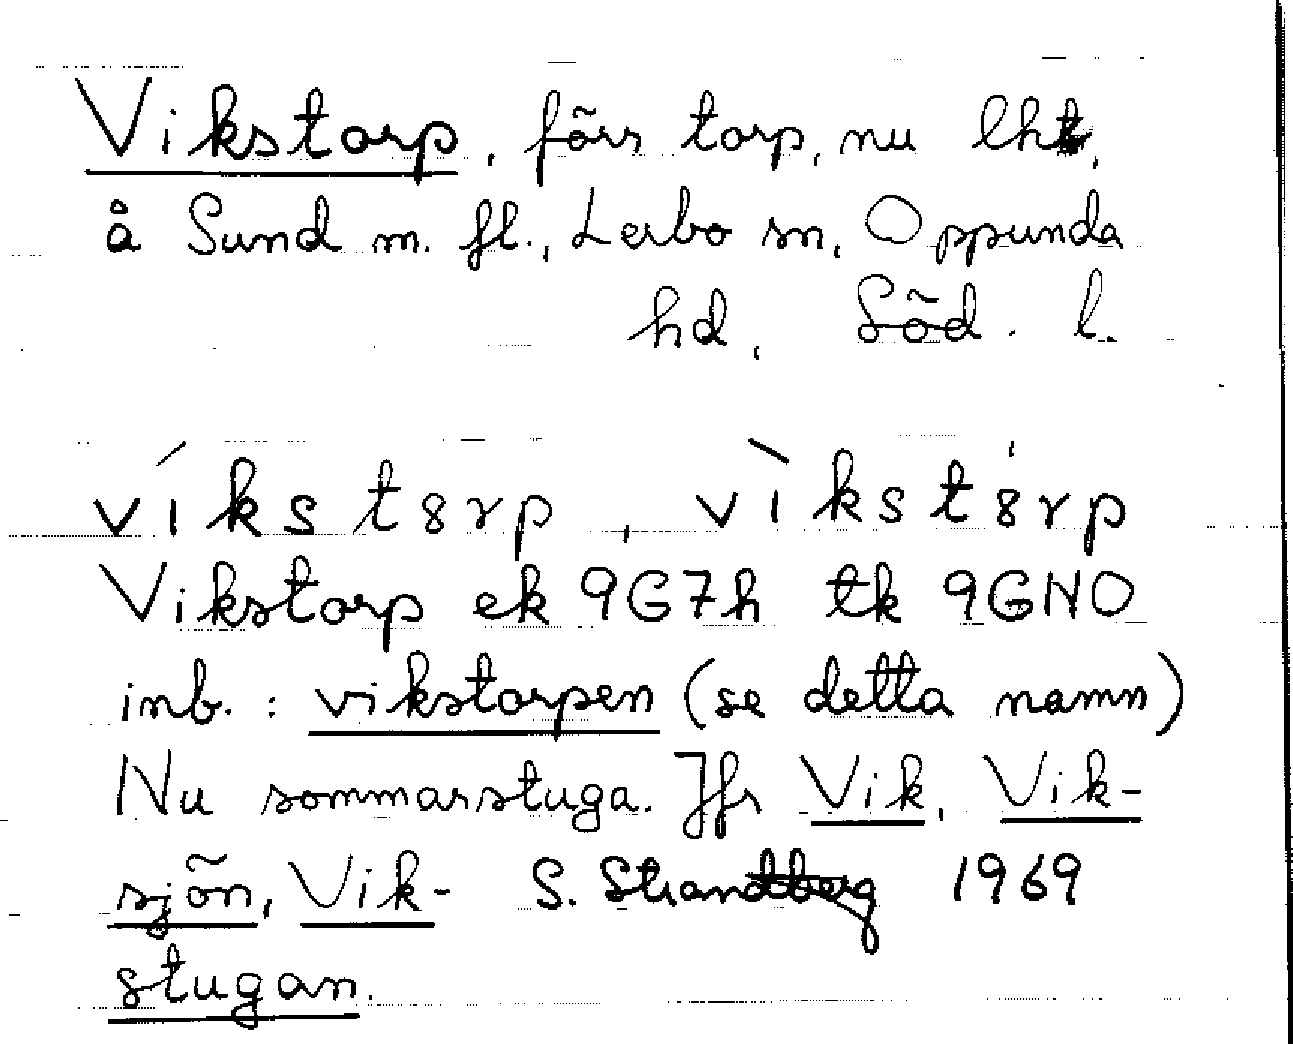 Vikstorp, förr torp, nu lht,
å Sund m. fl., Lerbo sn, Oppunda
hd, Söd. l.
víkst8rp, vìkst8̍rp
Vikstorp ek 9G7h tk 9GNO
inb.: vikstorpen (se detta namn)
Nu sommarstuga. Jfr Vik, Vik-
sjön, Vik- S. Strandberg 1969
stugan.